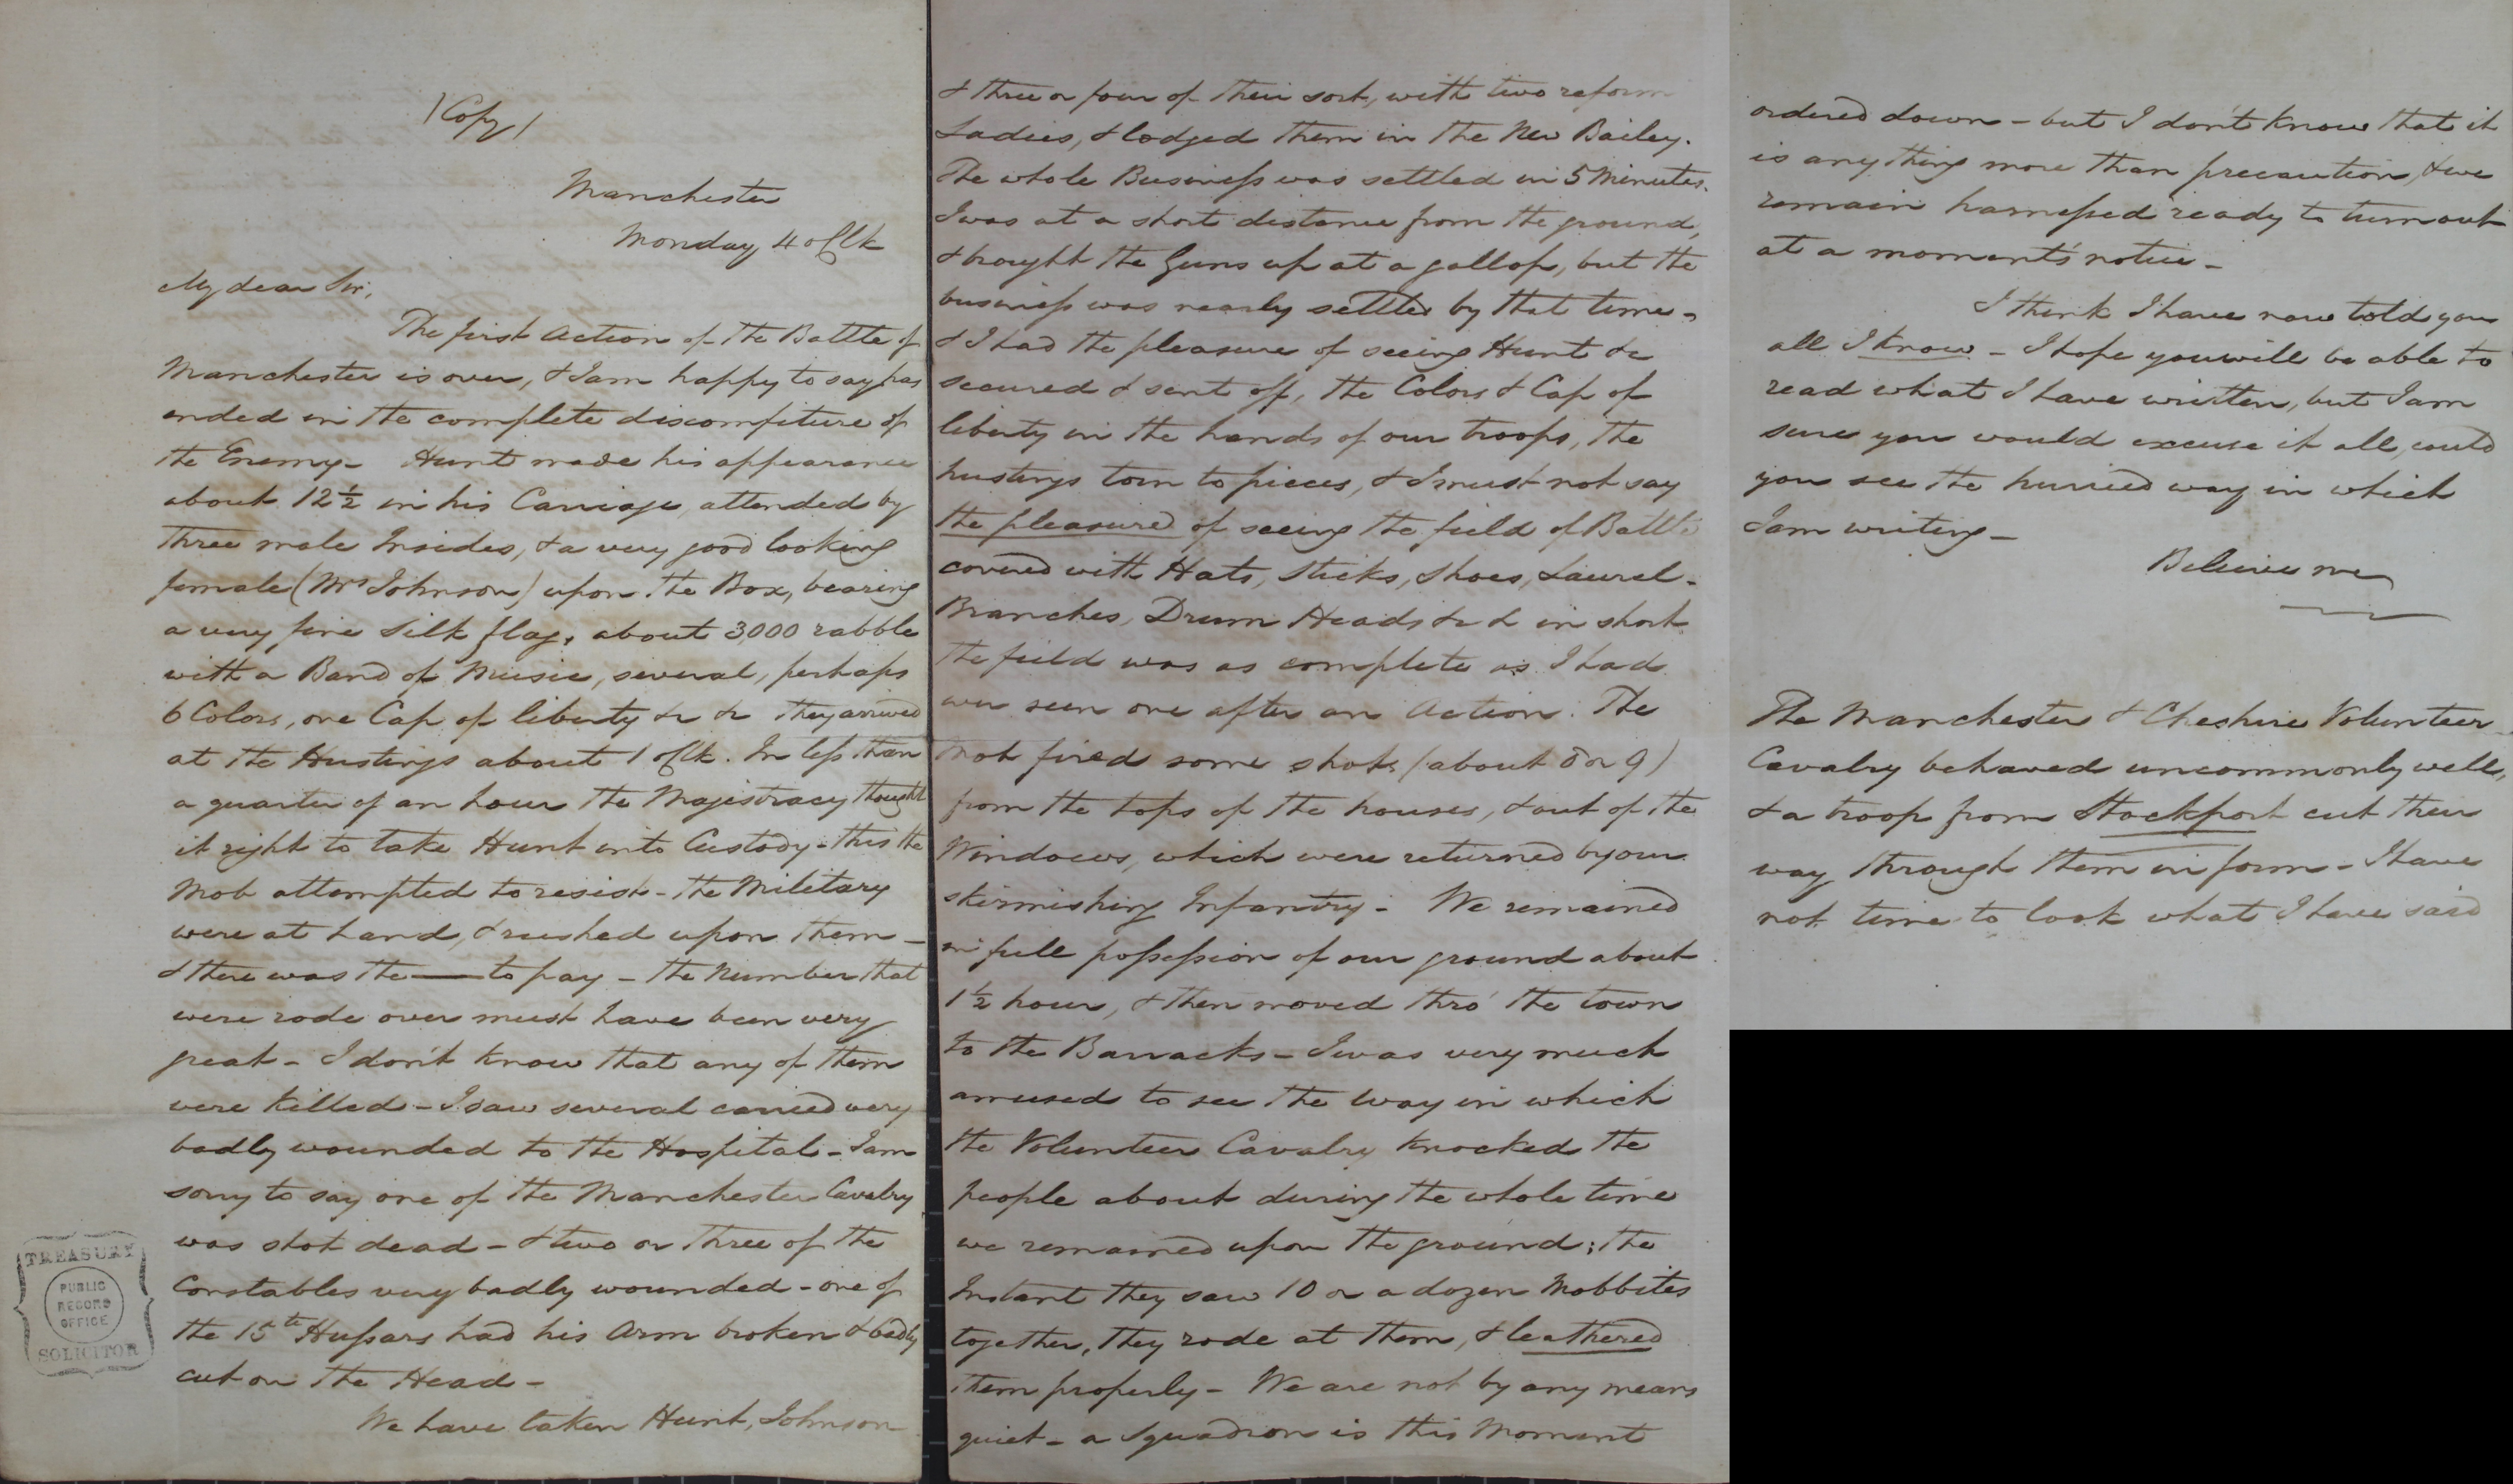 (Copy)
Manchester
Monday, 4 oClk
My dear Sir,
The first Action of the Battle of
Manchester is over, & I am happy to say has
ended in the complete discomfiture of
the Enemy – Hunt made his appearance
about 12½ in his Carriage, attended by
three male Insides, & a very good looking
female (Mrs Johnson) upon the Box, bearing
a very fine Silk flag, about 3,000 rabble
with a Band of Music, several, perhaps
6 Colors, one Cap of liberty &c &c they arrived
at the Hustings about 1 oClk. In less than
a quarter of an hour the Magistracy thought
it right to take Hunt into Custody – this the
Mob attempted to resist – the Military
were at hand, & rushed upon them –
& there was the — to pay – the Number that
were rode over must have been very
great – I don't know that any of them
were killed – I saw several carried very
badly wounded to the Hospital – I am
sorry to say one of the Manchester Cavalry
was shot dead – & two or three of the
Constables very badly wounded – one of
the 15th Hussars had his Arm broken & badly
cut on the Head –
We have taken Hunt, Johnson
TREASURY
PUBLIC
RECORD
OFFICE
SOLICITOR
& three or four of their sort, with two reform
Ladies, & lodged them in the New Bailey.
The whole Business was settled in 5 Minutes.
I was at a short distance from the ground,
& brought the Guns up at a gallop, but the
business was nearly settled by that time –
& I had the pleasure of seeing Hunt &c
secured & sent off, the Colors & Cap of
liberty in the hands of our troops, the
hustings torn to pieces, & I must not say
the pleasure of seeing the field of Battle
covered with Hats, Sticks, Shoes, Laurel-
Branches, Drum Heads &c &c in short
the field was as complete as I had
ever seen one after an Action. The
Mob fired some shots (about 8 or 9)
from the tops of the houses, & out of the
Windows, which were returned by our
skirmishing Infantry – We remained
in full possession of our ground about
1½ hour, & then moved thro' the town
to the Barracks – I was very much
amused to see the way in which
the Volunteer Cavalry knocked the
people about during the whole time
we remained upon the ground; the
Instant they saw 10 or a dozen Mobbites
together, they rode at them, & leathered
them properly – We are not by any means
quiet – a Squadron is this Moment
ordered down – but I don't know that it
is any thing more than precaution, & we
remain harnessed ready to turn out
at a moment's notice –
I think I have now told you
all I know – I hope you will be able to
read what I have written, but I am
sure you would excuse it all, could
you see the hurried way in which
I am writing –
Believe me
The Manchester & Cheshire Volunteer
Cavalry behaved uncommonly well,
& a troop from Stockport cut their
way through them in form – I have
not time to look what I have said